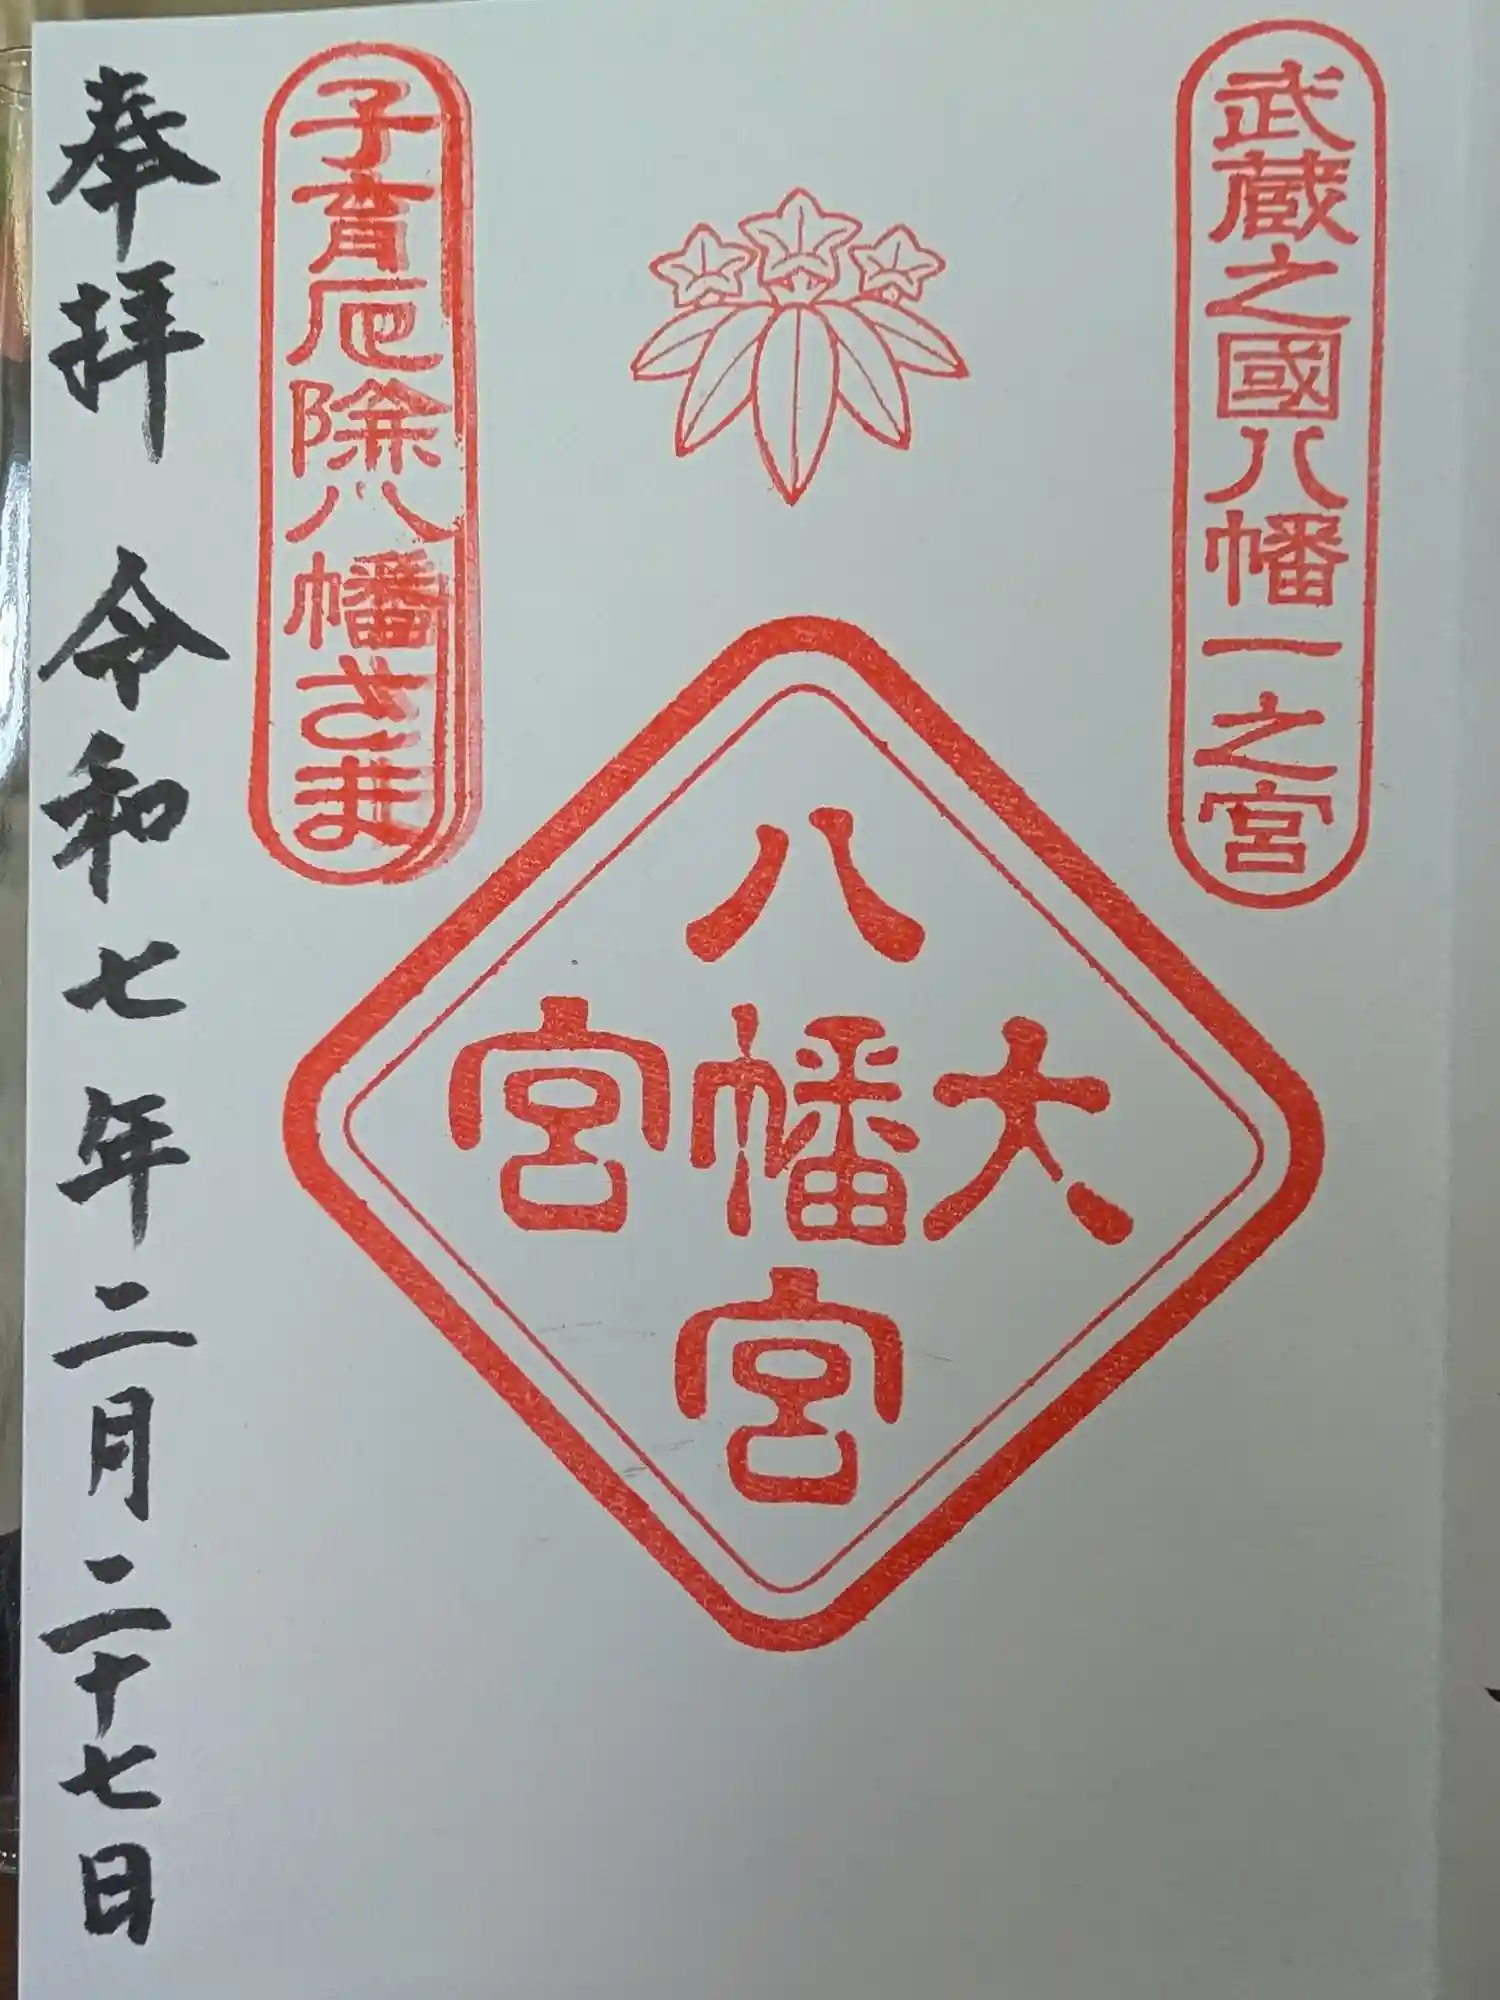 武蔵之國八幡一之宮
八
大幡宮
宮
子育厄除八幡さま
奉拝 令和七年二月二十七日